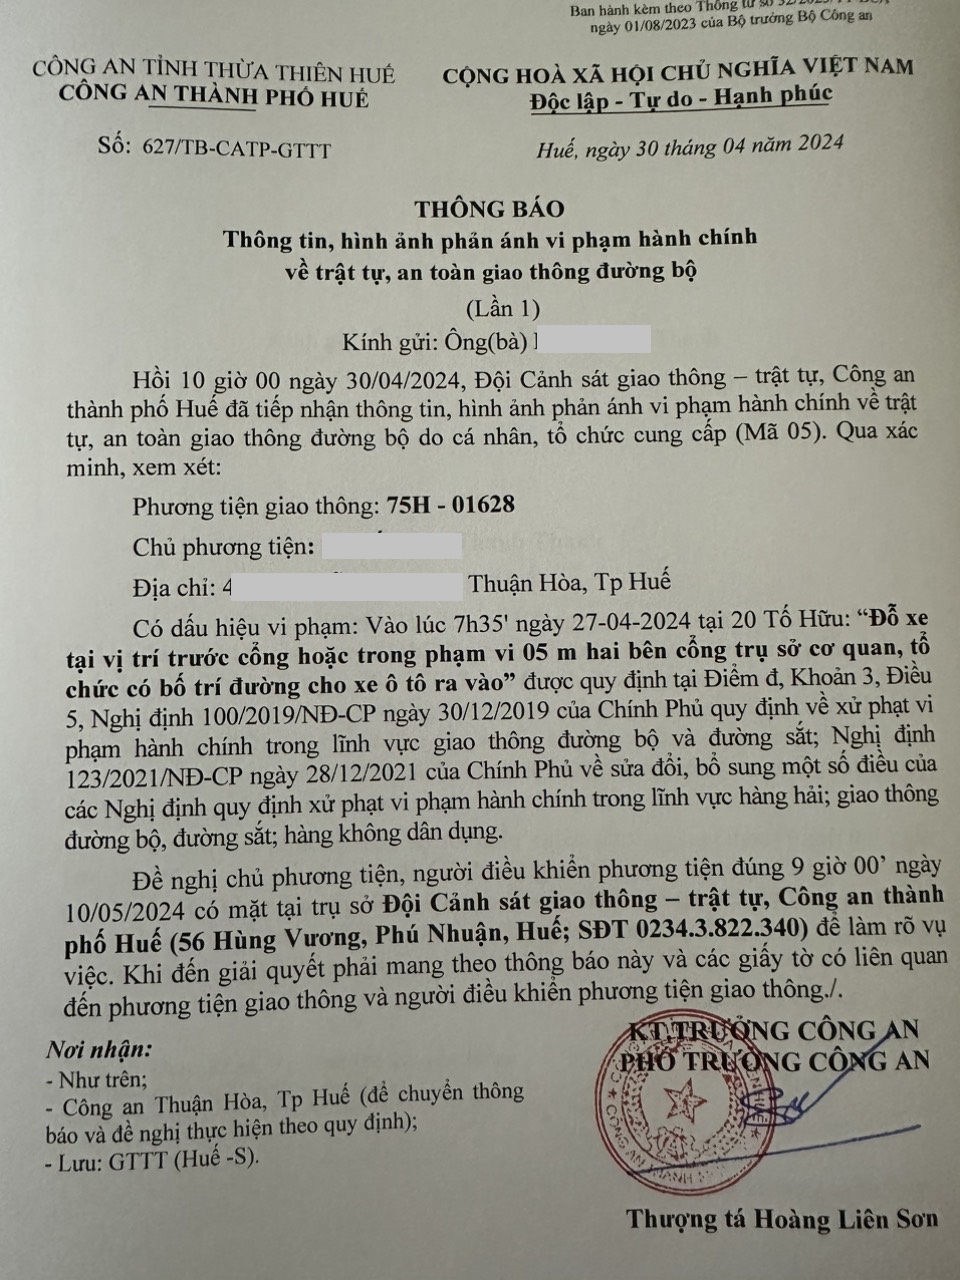 Ban hành kèm theo Thông tư số 32/2023/TT-BCA
ngày 01/08/2023 của Bộ trưởng Bộ Công an
CÔNG AN TỈNH THỪA THIÊN HUẾ
CÔNG AN THÀNH PHỐ HUẾ
CỘNG HOÀ XÃ HỘI CHỦ NGHĨA VIỆT NAM
Độc lập - Tự do - Hạnh phúc
Số: 627/TB-CATP-GTTT
Huế, ngày 30 tháng 04 năm 2024
THÔNG BÁO
Thông tin, hình ảnh phản ánh vi phạm hành chính
về trật tự, an toàn giao thông đường bộ
(Lần 1)
Kính gửi: Ông(bà)
Hồi 10 giờ 00 ngày 30/04/2024, Đội Cảnh sát giao thông – trật tự, Công an
thành phố Huế đã tiếp nhận thông tin, hình ảnh phản ánh vi phạm hành chính về trật
tự, an toàn giao thông đường bộ do cá nhân, tổ chức cung cấp (Mã 05). Qua xác
minh, xem xét:
Phương tiện giao thông: 75H - 01628
Chủ phương tiện:
Địa chỉ: 4 Thuận Hòa, Tp Huế
Có dấu hiệu vi phạm: Vào lúc 7h35' ngày 27-04-2024 tại 20 Tố Hữu: “Đỗ xe
tại vị trí trước cổng hoặc trong phạm vi 05 m hai bên cổng trụ sở cơ quan, tổ
chức có bố trí đường cho xe ô tô ra vào” được quy định tại Điểm đ, Khoản 3, Điều
5, Nghị định 100/2019/NĐ-CP ngày 30/12/2019 của Chính Phủ quy định về xử phạt vi
phạm hành chính trong lĩnh vực giao thông đường bộ và đường sắt; Nghị định
123/2021/NĐ-CP ngày 28/12/2021 của Chính Phủ về sửa đổi, bổ sung một số điều của
các Nghị định quy định xử phạt vi phạm hành chính trong lĩnh vực hàng hải; giao thông
đường bộ, đường sắt; hàng không dân dụng.
Đề nghị chủ phương tiện, người điều khiển phương tiện đúng 9 giờ 00’ ngày
10/05/2024 có mặt tại trụ sở Đội Cảnh sát giao thông – trật tự, Công an thành
phố Huế (56 Hùng Vương, Phú Nhuận, Huế; SĐT 0234.3.822.340) để làm rõ vụ
việc. Khi đến giải quyết phải mang theo thông báo này và các giấy tờ có liên quan
đến phương tiện giao thông và người điều khiển phương tiện giao thông./.
KT.TRƯỞNG CÔNG AN
PHÓ TRƯỞNG CÔNG AN
Nơi nhận:
- Như trên;
- Công an Thuận Hòa, Tp Huế (để chuyển thông
báo và đề nghị thực hiện theo quy định);
- Lưu: GTTT (Huế -S).
Thượng tá Hoàng Liên Sơn